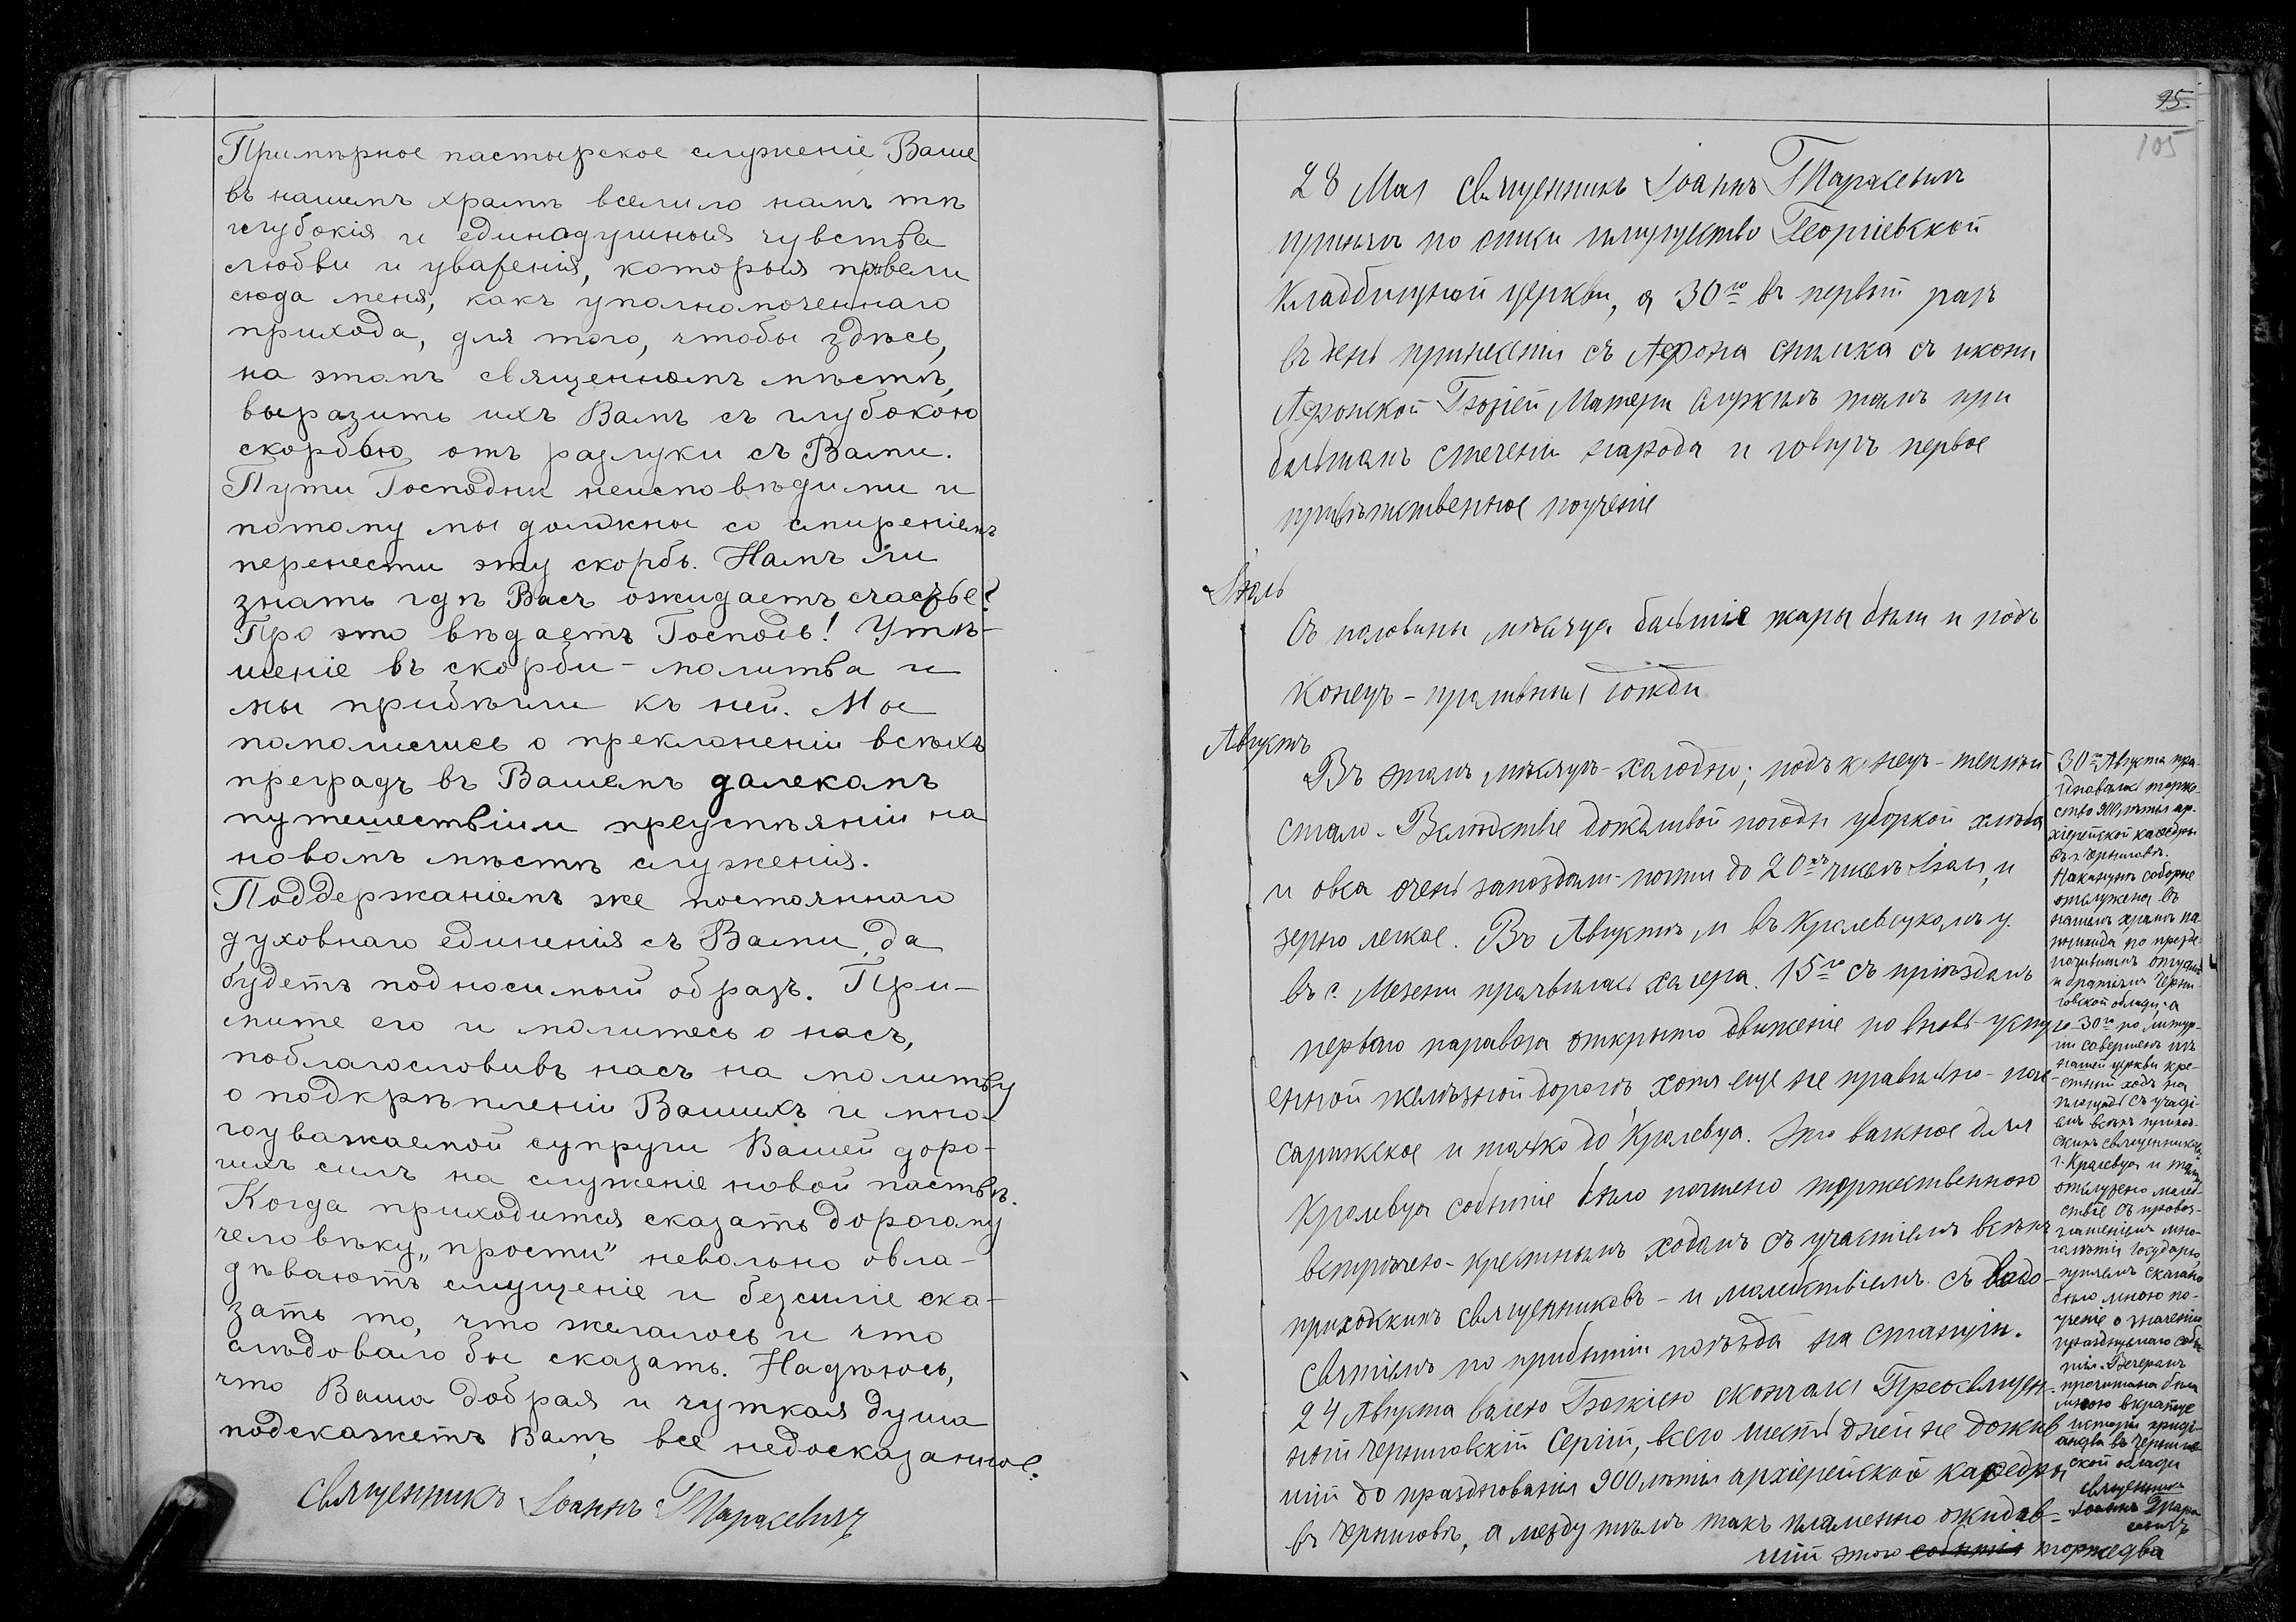 Примѣрное пастырское служеніе Ваше
въ нашемъ храмѣ вселило намъ тѣ
глубокія и единодушныя чувства
любви и уваженія, которыя привели
сюда меня, какъ уполномоченнаго
прихода, для того, чтобы здѣсь,
на этомъ священномъ мѣстѣ,
выразить ихъ Вамъ съ глубокою
скорбью отъ разлуки съ Вами.
Пути Господни неисповѣдимы и
потому мы должны со смиреніемъ
перенести эту скорбь. Намъ ли
знать гдѣ Васъ ожидаетъ счастье?
Про это вѣдаетъ Господь! Утѣ-
шеніе въ скорби - молитва и
мы прибѣгли къ ней. Мы
помолились о преклоненіи всѣхъ
преградъ въ Вашемъ далекомъ
путешествіи и преуспѣяніи на
новомъ мѣстѣ служенія.
Поддержаніемъ же постояннаго
духовнаго единенія съ Вами да
будетъ подносимый образъ. При-
мите его и молитесь о насъ,
поблагословивъ насъ на молитву
о подкрѣпленіи Вашихъ и мно-
гоуважаемой супруги Вашей доро-
гихъ силъ на служеніе новой паствѣ.
Когда приходится сказать дорогому
человѣку „прости" невольно овла-
дѣваютъ смущеніе и безсиліе ска-
зать то, что желалось и что
слѣдовало бы сказать. Надѣюсь,
что Ваша добрая и чуткая душа
подскажетъ Вамъ все недосказанное.
Священникъ Іоаннъ Тарасевичъ
95.
105
28 Мая священникъ Іоаннъ Тарасевичъ
принялъ по описи имущество Георгіевской
Кладбищной церкви, а 30го въ первый разъ
въ день принесенія съ Афона снимка съ иконы
Афонской Божіей Матери служилъ тамъ при
большомъ стеченіи народа и говорилъ первое
привѣтственное поученіе
Іюль
Съ половины мѣсяца большія жары были и подъ
конецъ - проливные дожди
Августъ
Въ этомъ мѣсяцѣ - холодно; подъ конецъ - теплый
стало. Вслѣдствіе дождливой погоды уборкой хлѣба
и овса очень запоздали - почти до 20хъ чиселъ, и
зерно легкое. Въ Августѣ м въ Кролевецкомъ у.
въ с. Мезени проявилась холера. 15го съ пріѣздомъ
перваго паровоза открыто движеніе по вновь устро
енной желѣзной дорогѣ хотя еще не правильно - пас
сажирское и только до Кролевца. Это важное для
Кролевца событіе было почтено торжественною
встрѣчею - крестнымъ ходомъ съ участіемъ всѣхъ
приходскихъ священниковъ - и молебствіемъ съ водо-
святіемъ по прибытіи поѣзда на станцію.
24 Августа волею Божіею скончался Преосвящен-
ный Черниговскій Сергій, всего шесть дней не дожив
шій до празднованія 900лѣтія архіерейской каѳедры
въ Черниговѣ, а между тѣмъ такъ пламенно ожидав-
шій этого событія торжества
30го Августа пра-
здновалось торже-
ство 900лѣтія ар-
хіерейской каѳедры
въ г. Черниговѣ.
Наканунѣ соборне
отслужена въ
нашемъ храмѣ па
нихида по прежде
почившимъ
Черни-
говской области, а
30го по литур-
гіи совершенъ изъ
нашей церкви кре-
стный ходъ на
площадь съ участі-
емъ всѣхъ приход-
скихъ священниковъ
г. Кролевца и тамъ
отслужено молеб-
ствіе съ провоз-
глашеніемъ мно-
голѣтія Государю,
причемъ сказано
было мною по-
ученіе о значеніи
празднуемаго собы
тія. Вечеромъ
прочитана была
мною вкратцѣ
исторія христі-
анства въ Чернигов
ской области
Священникъ
Іоаннъ Тара
севичъ